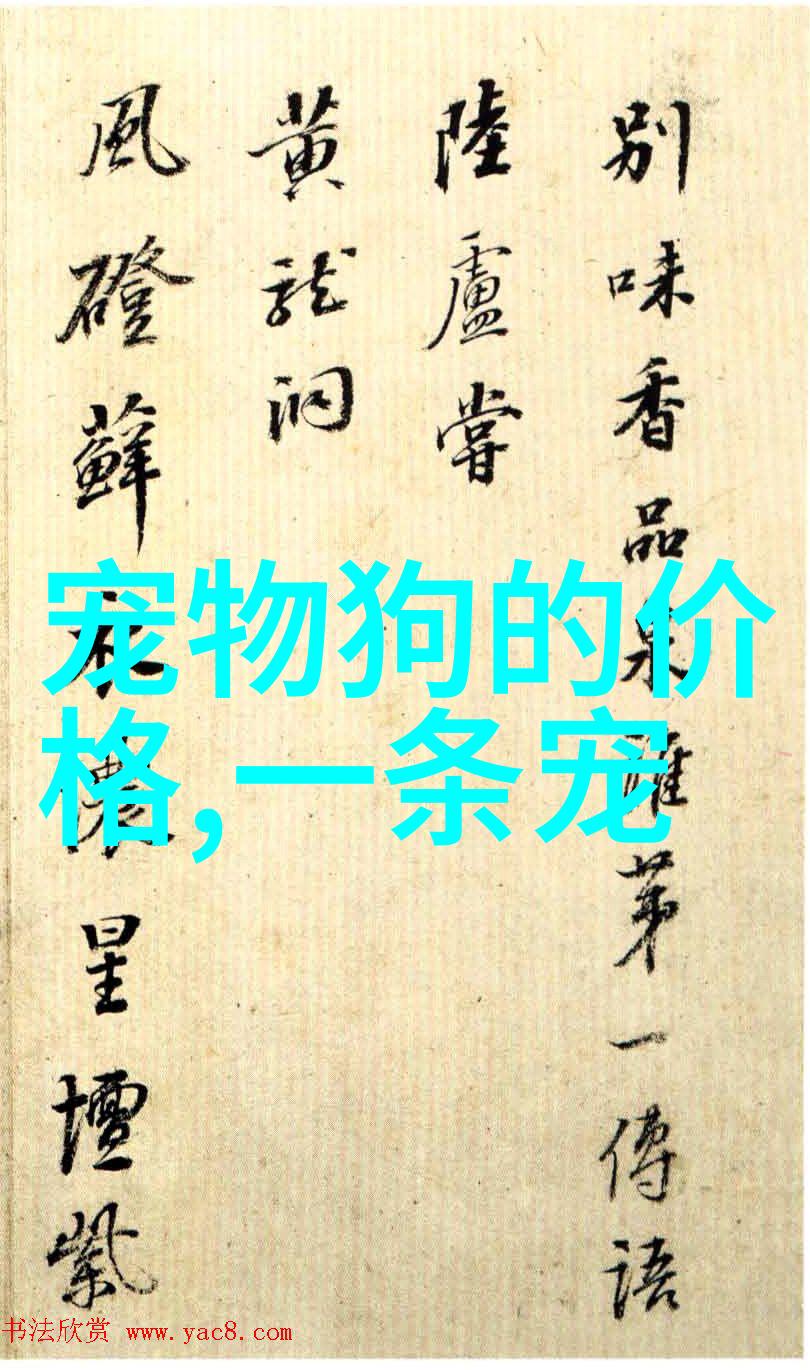 别味香品泉雖苐一傳語
陸盧嘗
黄龍洞
風磴蘚衣濃星壇紫
宠物狗的价
格,一条宠
书法欣赏 www.yac8.com